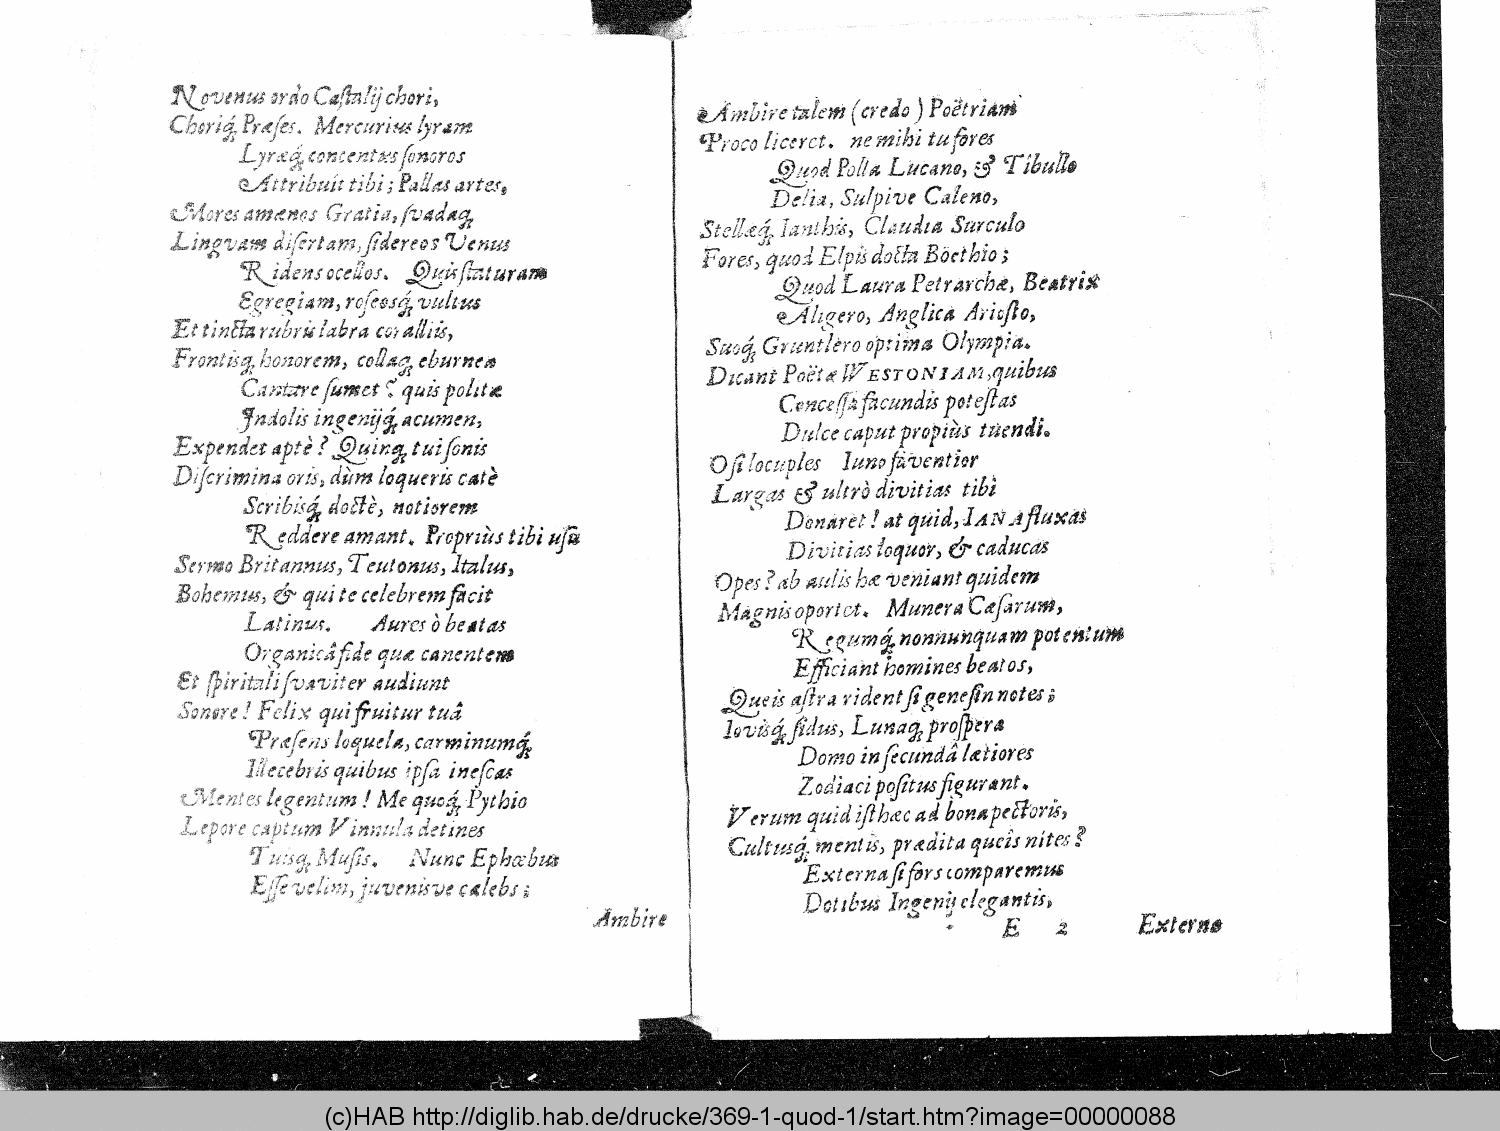 Novenus ordo Caſtalij chori,
Choriq́; Præſes. Mercurius lyram
Lyræq́; concentus ſonoros
Attribuit tibi; Pallas artes,
Mores amænos Gratia, ſvadaq;
Linguam diſertam, ſidereos Venus
Ridens ocellos. Quis ſtaturam
Egregiam, roſeosq́; vultus
Et tincta rubris labra corallis,
Frontisq; honorem, collaq; eburnea
Cantare ſumet? quis politæ
Indolis ingenijq́; acumen,
Expendet aptè? Quinq; tui ſonis
Diſcrimina oris, dùm loqueris catè
Scribisq́; doctè, notiorem
Reddere amant. Propriùs tibi uſu
Sermo Britannus, Teutonus, Italus,
Bohemus, & qui te celebrem facit
Latinus. Aures ò beatas
Organicâ fide quæ canentem
Et ſpiritali ſvaviter audiunt
Sonore! Felix qui fruitur tuâ
Præſens loquela, carminumq́;
Illecebris quibus ipſa ineſcas
Mentes legentum! Me quoq́; Pythio
Lepore captum Vinnula detines
Tuisq; Muſis. Nunc Ephœbus
Eſſe velim, juvenisve cælebs;
Ambire
Ambire talem (credo) Poëtriam
Proco liceret. ne mihi tu fores
Quod Polla Lucano, & Tibullo
Delia, Sulpive Caleno,
Stellæq́; Ianthis, Claudia Surculo
Fores, quod Elpis docta Boethio;
Quod Laura Petrarchæ, Beatrix
Aligero, Anglica Arioſto,
Suoq́; Gruntlero optima Olympia.
Dicant Poëtæ WESTONIAM, quibus
Conceſſa facundis poteſtas
Dulce caput propiùs tuendi.
O ſi locuples Iuno faventior
Largas & ultrò divitias tibi
Donaret! at quid, IANA fluxas
Divitias loquor, & caducas
Opes? ab aulis hæ veniant quidem
Magnis oportet. Munera Cæſarum,
Regumq́; nonnunquam potentum
Efficiant homines beatos,
Queis aſtra rident ſi geneſin notes;
Iovisq́; ſidus, Lunaq; proſpera
Domo in ſecundâ lætiores
Zodiaci poſitus figurant.
Verum quid iſthæc ad bona pectoris,
Cultusq́; mentis, prædita queîs nites?
Externa ſi fors comparemus
Dotibus Ingenij elegantis,
E 2 Externo
(c)HAB http://diglib.hab.de/drucke/369-1-quod-1/start.htm?image=00000088